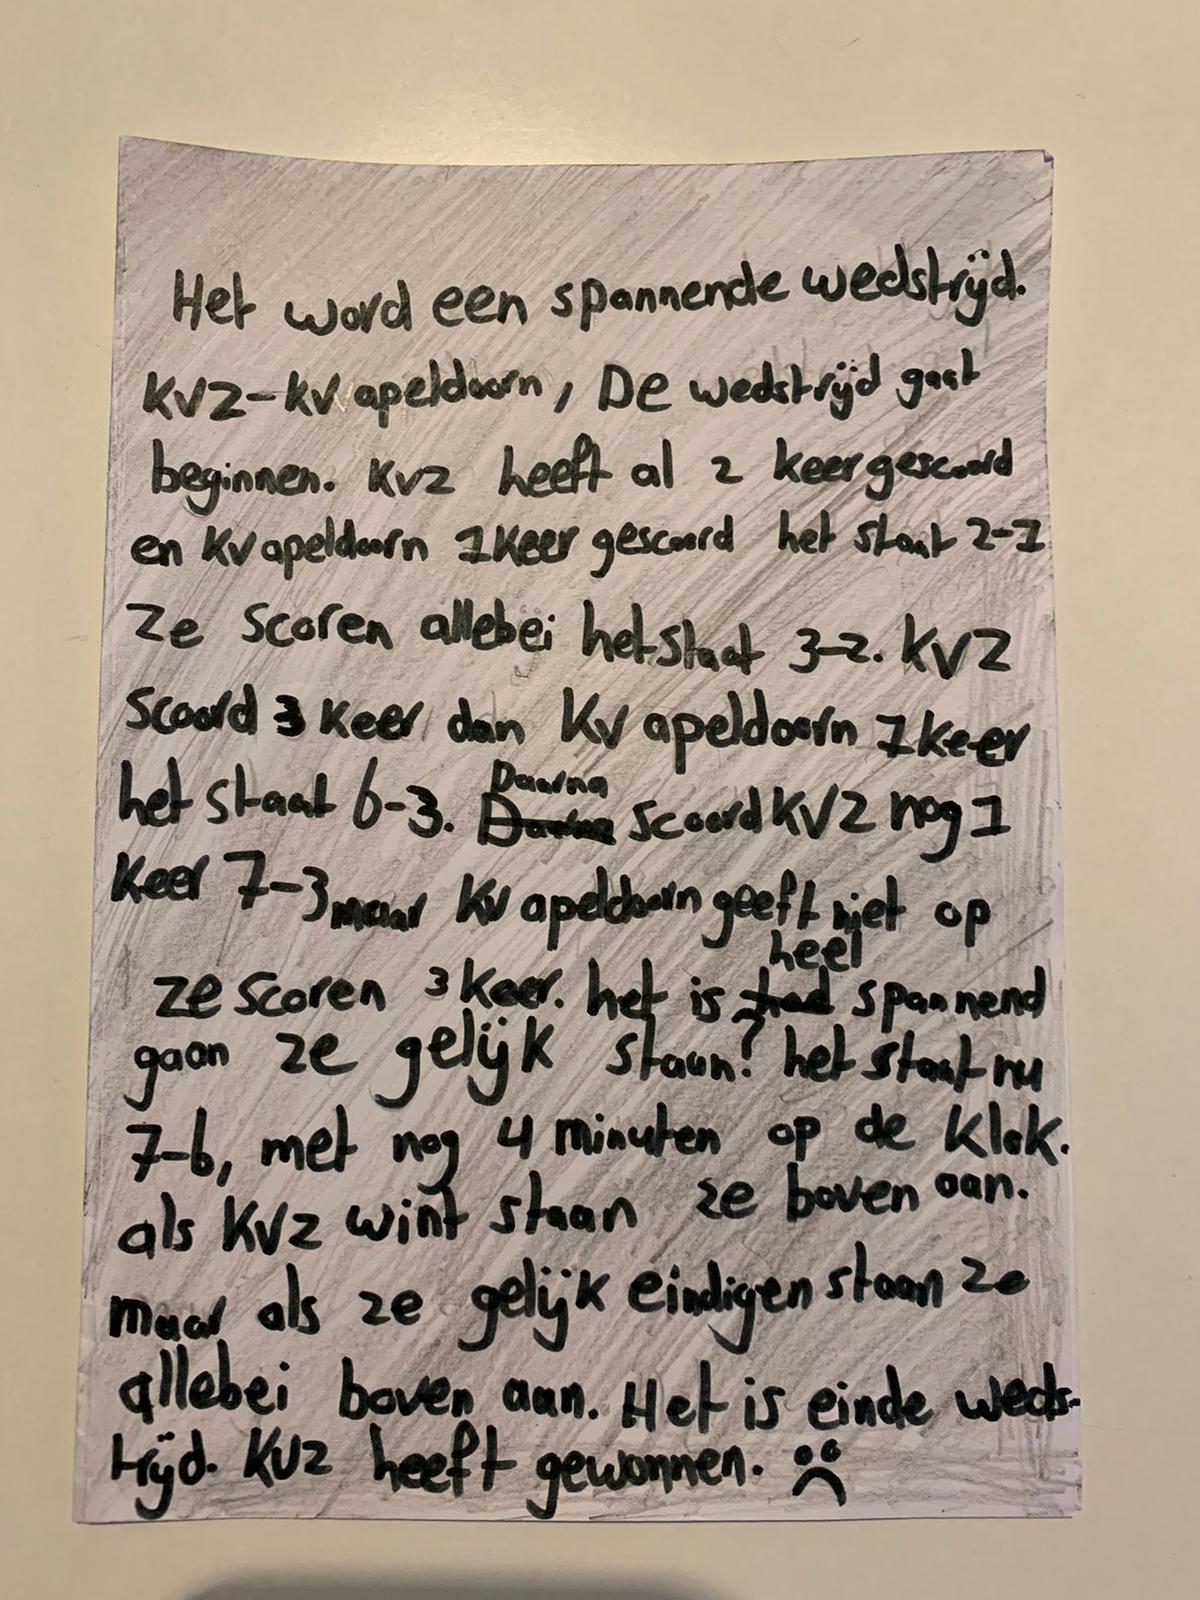 Het word een spannende wedstrijd.
KVZ-kv apeldoorn, De wedstrijd gaat
beginnen. KVZ heeft al 2 keer gescoord
en KV apeldoorn 1 keer gescoord het staat 2-1
Ze scoren allebei het staat 3-2. KVZ
Scoord 3 keer dan KV apeldoorn 1 keer
het staat 6-3. Daarna scoord KVZ nog 1
Keer 7-3 maar KV apeldoorn geeft niet op
ze scoren 3 keer. het is heel spannend
gaan ze gelijk staan? het staat nu
7-6, met nog 4 minuten op de klok.
als KVZ wint staan ze boven aan.
maar als ze gelijk eindigen staan ze
allebei boven aan. Het is einde weds-
trijd. KVZ heeft gewonnen.